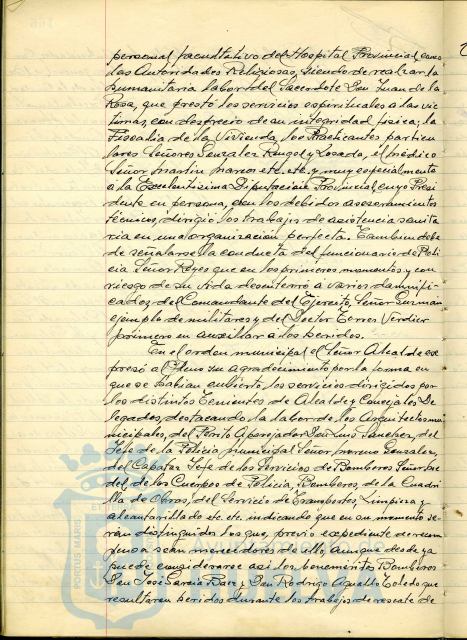 personal facultativo del Hospital Provincial, como
las Autoridades Religiosas, siendo de realzar la
humanitaria labor del Sacerdote Don Juan de la
Rosa, que prestó los servicios espirituales a las víc-
timas, con desprecio de su integridad física; la
Fiscalía de la Vivienda, los Practicantes particu-
lares Señores González Rengel y Losada, el médico
Señor Martín Marcos etc. etc. y muy especialmente
a la Excelentísima Diputación Provincial, cuyo Presi-
dente en persona, con los debidos asesoramientos
técnicos, dirigió los trabajos de asistencia sanita-
ria en una organización perfecta. También debe
de señalarse la conducta del funcionario de Poli-
cía Señor Reyes que en los primeros momentos y con
riesgo de su vida desenterró a varios damnifi-
cados, del Comandante del Ejército, Señor Guzmán
ejemplo de militares y del Doctor Terres Verdier
primero en auxiliar a los heridos.
En el orden municipal el Señor Alcalde ex-
presó al Pleno su agradecimiento por la forma en
que se habían cubierto los servicios dirigidos por
los distintos Tenientes de Alcalde y Concejales De-
legados, destacando la labor de los Arquitectos mu-
nicipales, del Perito Aparejador Don Luis Sánchez, del
Jefe de la Policía municipal Señor Moreno González,
del Capataz Jefe de los Servicios de Bomberos Señor
del de los Cuerpos de Policía, Bomberos, de la Cuadri-
lla de Obras, del Servicio de Transportes, Limpieza y
alcantarillado etc. etc. indicando que en su momento se-
rán distinguidos los que, previo expediente de recom-
pensa sean merecedores de ello, aunque desde ya
puede considerarse así los beneméritos Bomberos
Don José García Báez y Don Rodrigo Agualto Toledo que
resultaron heridos durante los trabajos de rescate de
PORTUS MARIS
ET
Ayuntamiento de
HUELVA